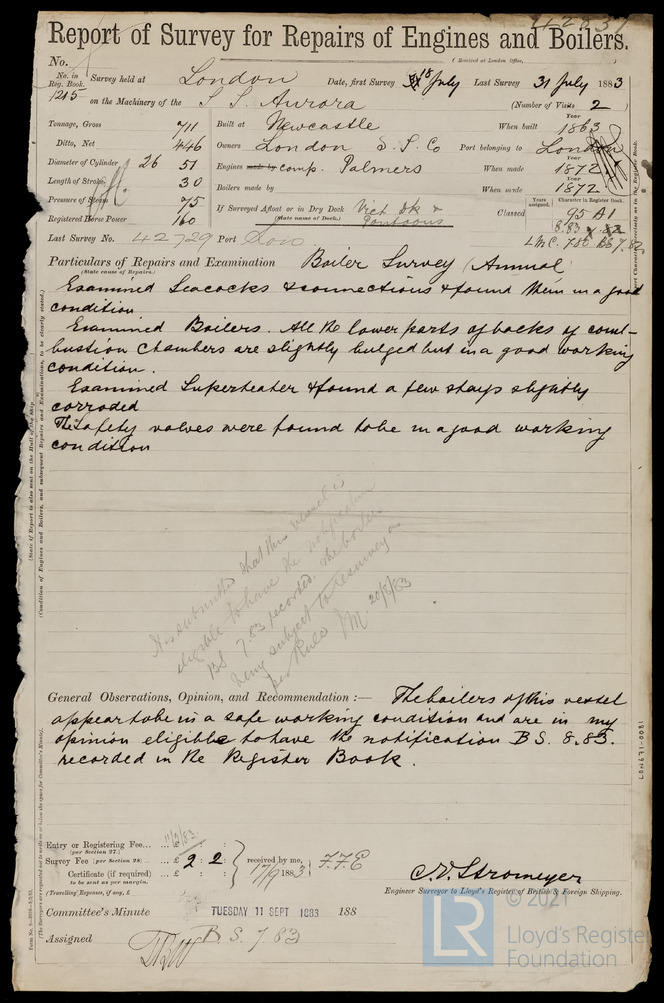 42837
Report of Survey for Repairs of Engines and Boilers.
(Received at London Office,
No.
No. in Reg. Book. Survey held at London Date, first Survey 18 July Last Survey 31 July 1883
1215 on the Machinery of the S S. Aurora (Number of Visits 2 )
Tonnage, Gross 711 Built at Newcastle When built Year 1863
Ditto, Net 446 Owners London S. S. Co Port belonging to London
Diameter of Cylinder 26 51 Engines made by comp. Palmers When made Year 1872
Length of Stroke 30 Boilers made by When made Year 1872
Pressure of Steam 75 If Surveyed Afloat or in Dry Dock Vict Dk & Pontoons Classed Years assigned. Character in Register Book. 95 A1
Registered Horse Power 160 (State name of Dock.) 8.83
Last Survey No. 42729 Port Lon LMC. 7.82 BS 7.82
Particulars of Repairs and Examination Boiler Survey (Annual
(State cause of Repairs.)
Examined Seacocks & connections & found them in a good
condition
Examined Boilers. All the lower parts of backs of com-
bustion Chambers are slightly bulged but in a good working
condition.
Examined Superheater & found a few stays slightly
corroded
The Safety valves were found to be in a good working
condition
It is submitted that this vessel is
eligible to have the notification
BS 7.83 recorded. the boiler
being subject to resurvey as
per Rules M. 20/8/83
General Observations, Opinion, and Recommendation :— The boilers of this vessel
appear to be in a safe working condition and are in my
opinion eligible to have the notification B S. 8.83.
recorded in the Register Book.
Entry or Registering Fee...
(per Section 27.)
Survey Fee (per Section 28) ... £ 2 : 2 : received by me, F.F.E
Certificate (if required) ... £ 17/9 1883
to be sent as per margin.
(Travelling Expenses, if any, £
C. E. Stromeyer
Engineer Surveyor to Lloyd's Register of British & Foreign Shipping.
Committee's Minute TUESDAY 11 SEPT 1883 188
Assigned B. S. 7.83
© 2021
LR
Lloyd's Register
Foundation